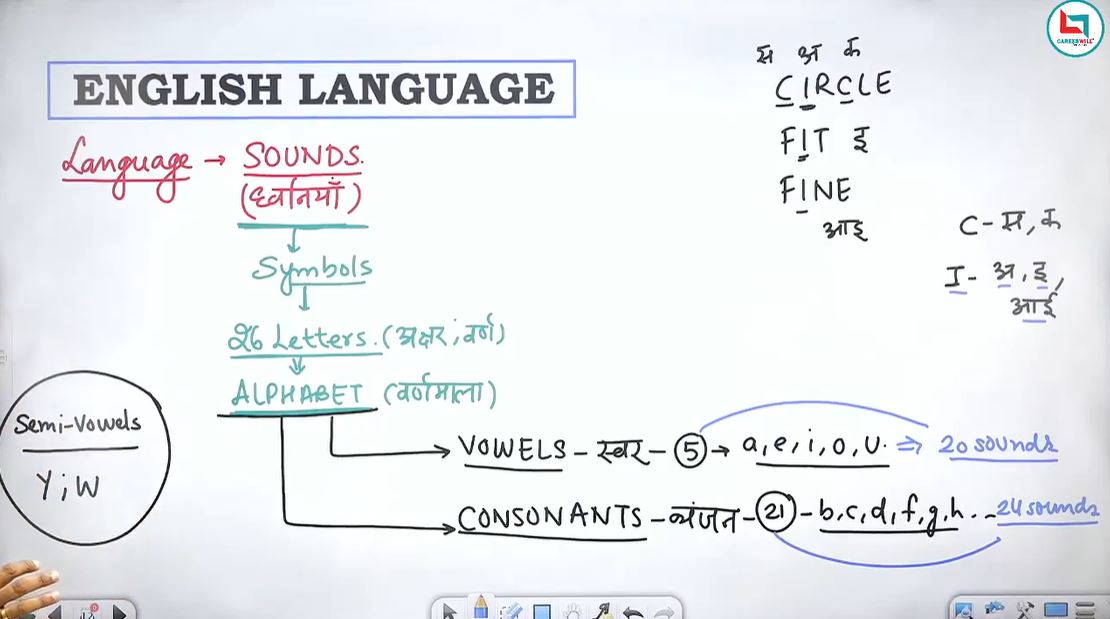 CAREERWILL
ENGLISH LANGUAGE
Language → SOUNDS.
(ध्वनियाँ)
Symbols
26 Letters. (अक्षर, वर्ण)
ALPHABET (वर्णमाला)
VOWELS - स्वर - 5 → a, e, i, o, u. ⇒ 20 sounds
CONSONANTS - व्यंजन - 21 - b, c, d, f, g, h... 24 sounds
Semi-Vowels
Y; W
स अ क
CIRCLE
FIT इ
FINE
आइ
C - स, क
I - अ, इ,
आई